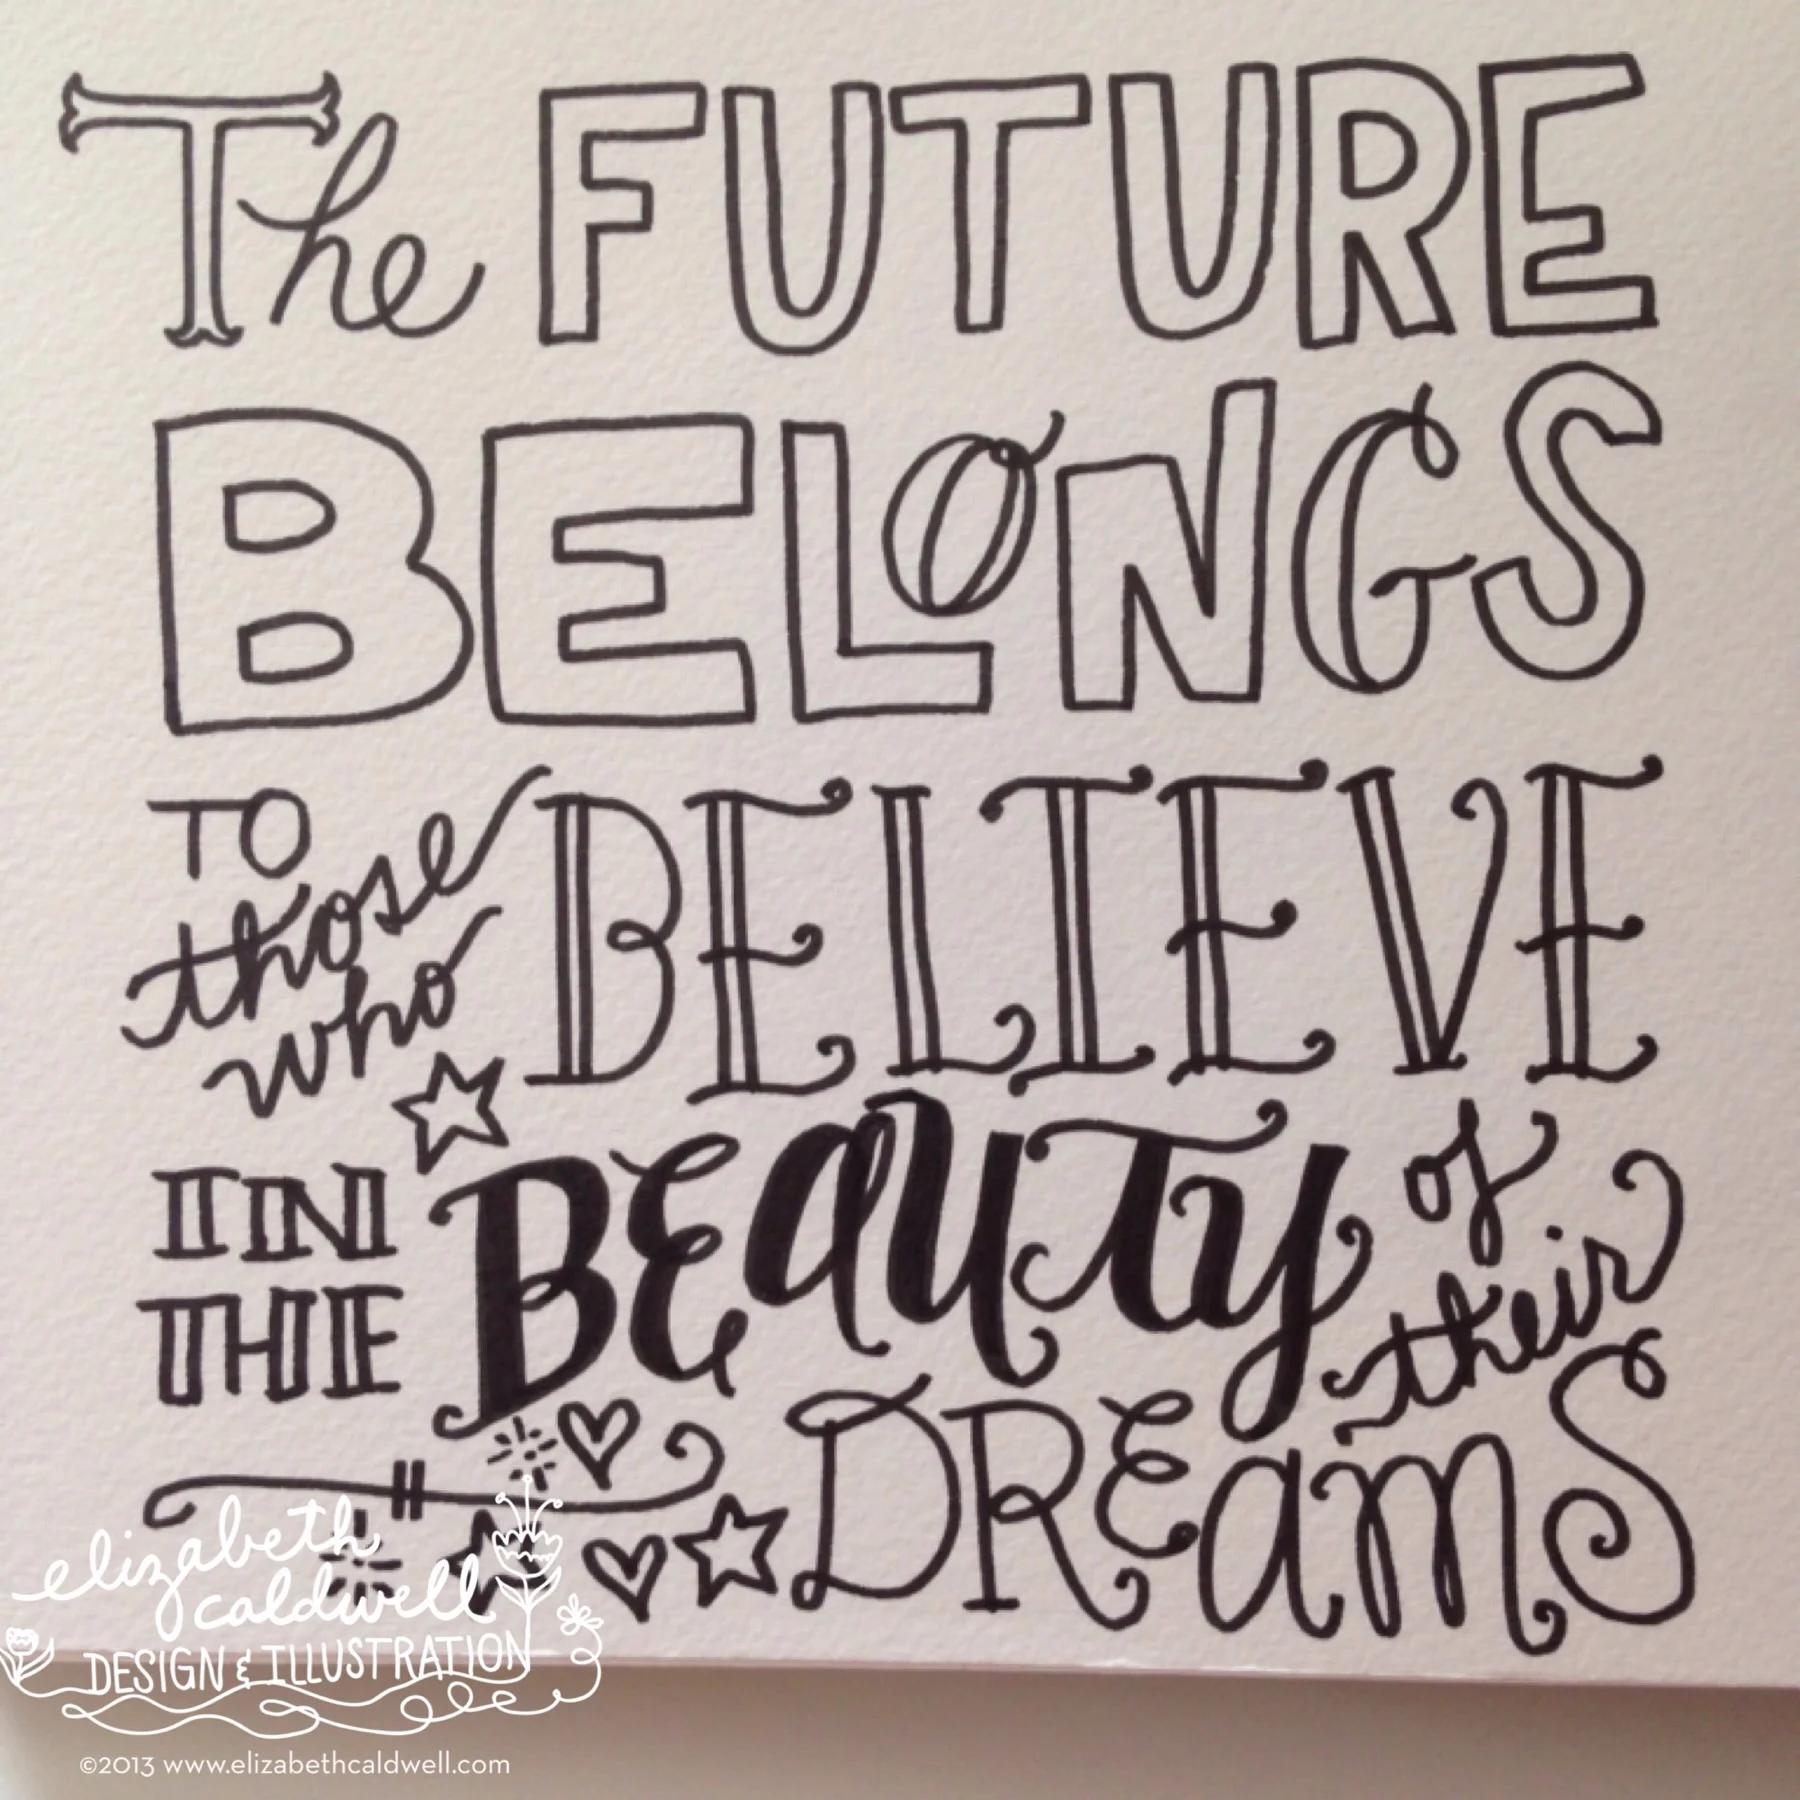 The FUTURE
BELONGS
TO
those
who
BELIEVE
IN
THE
BEAUTY
of
their
DREAMS
elizabeth
caldwell
DESIGN & ILLUSTRATION
©2013 www.elizabethcaldwell.com